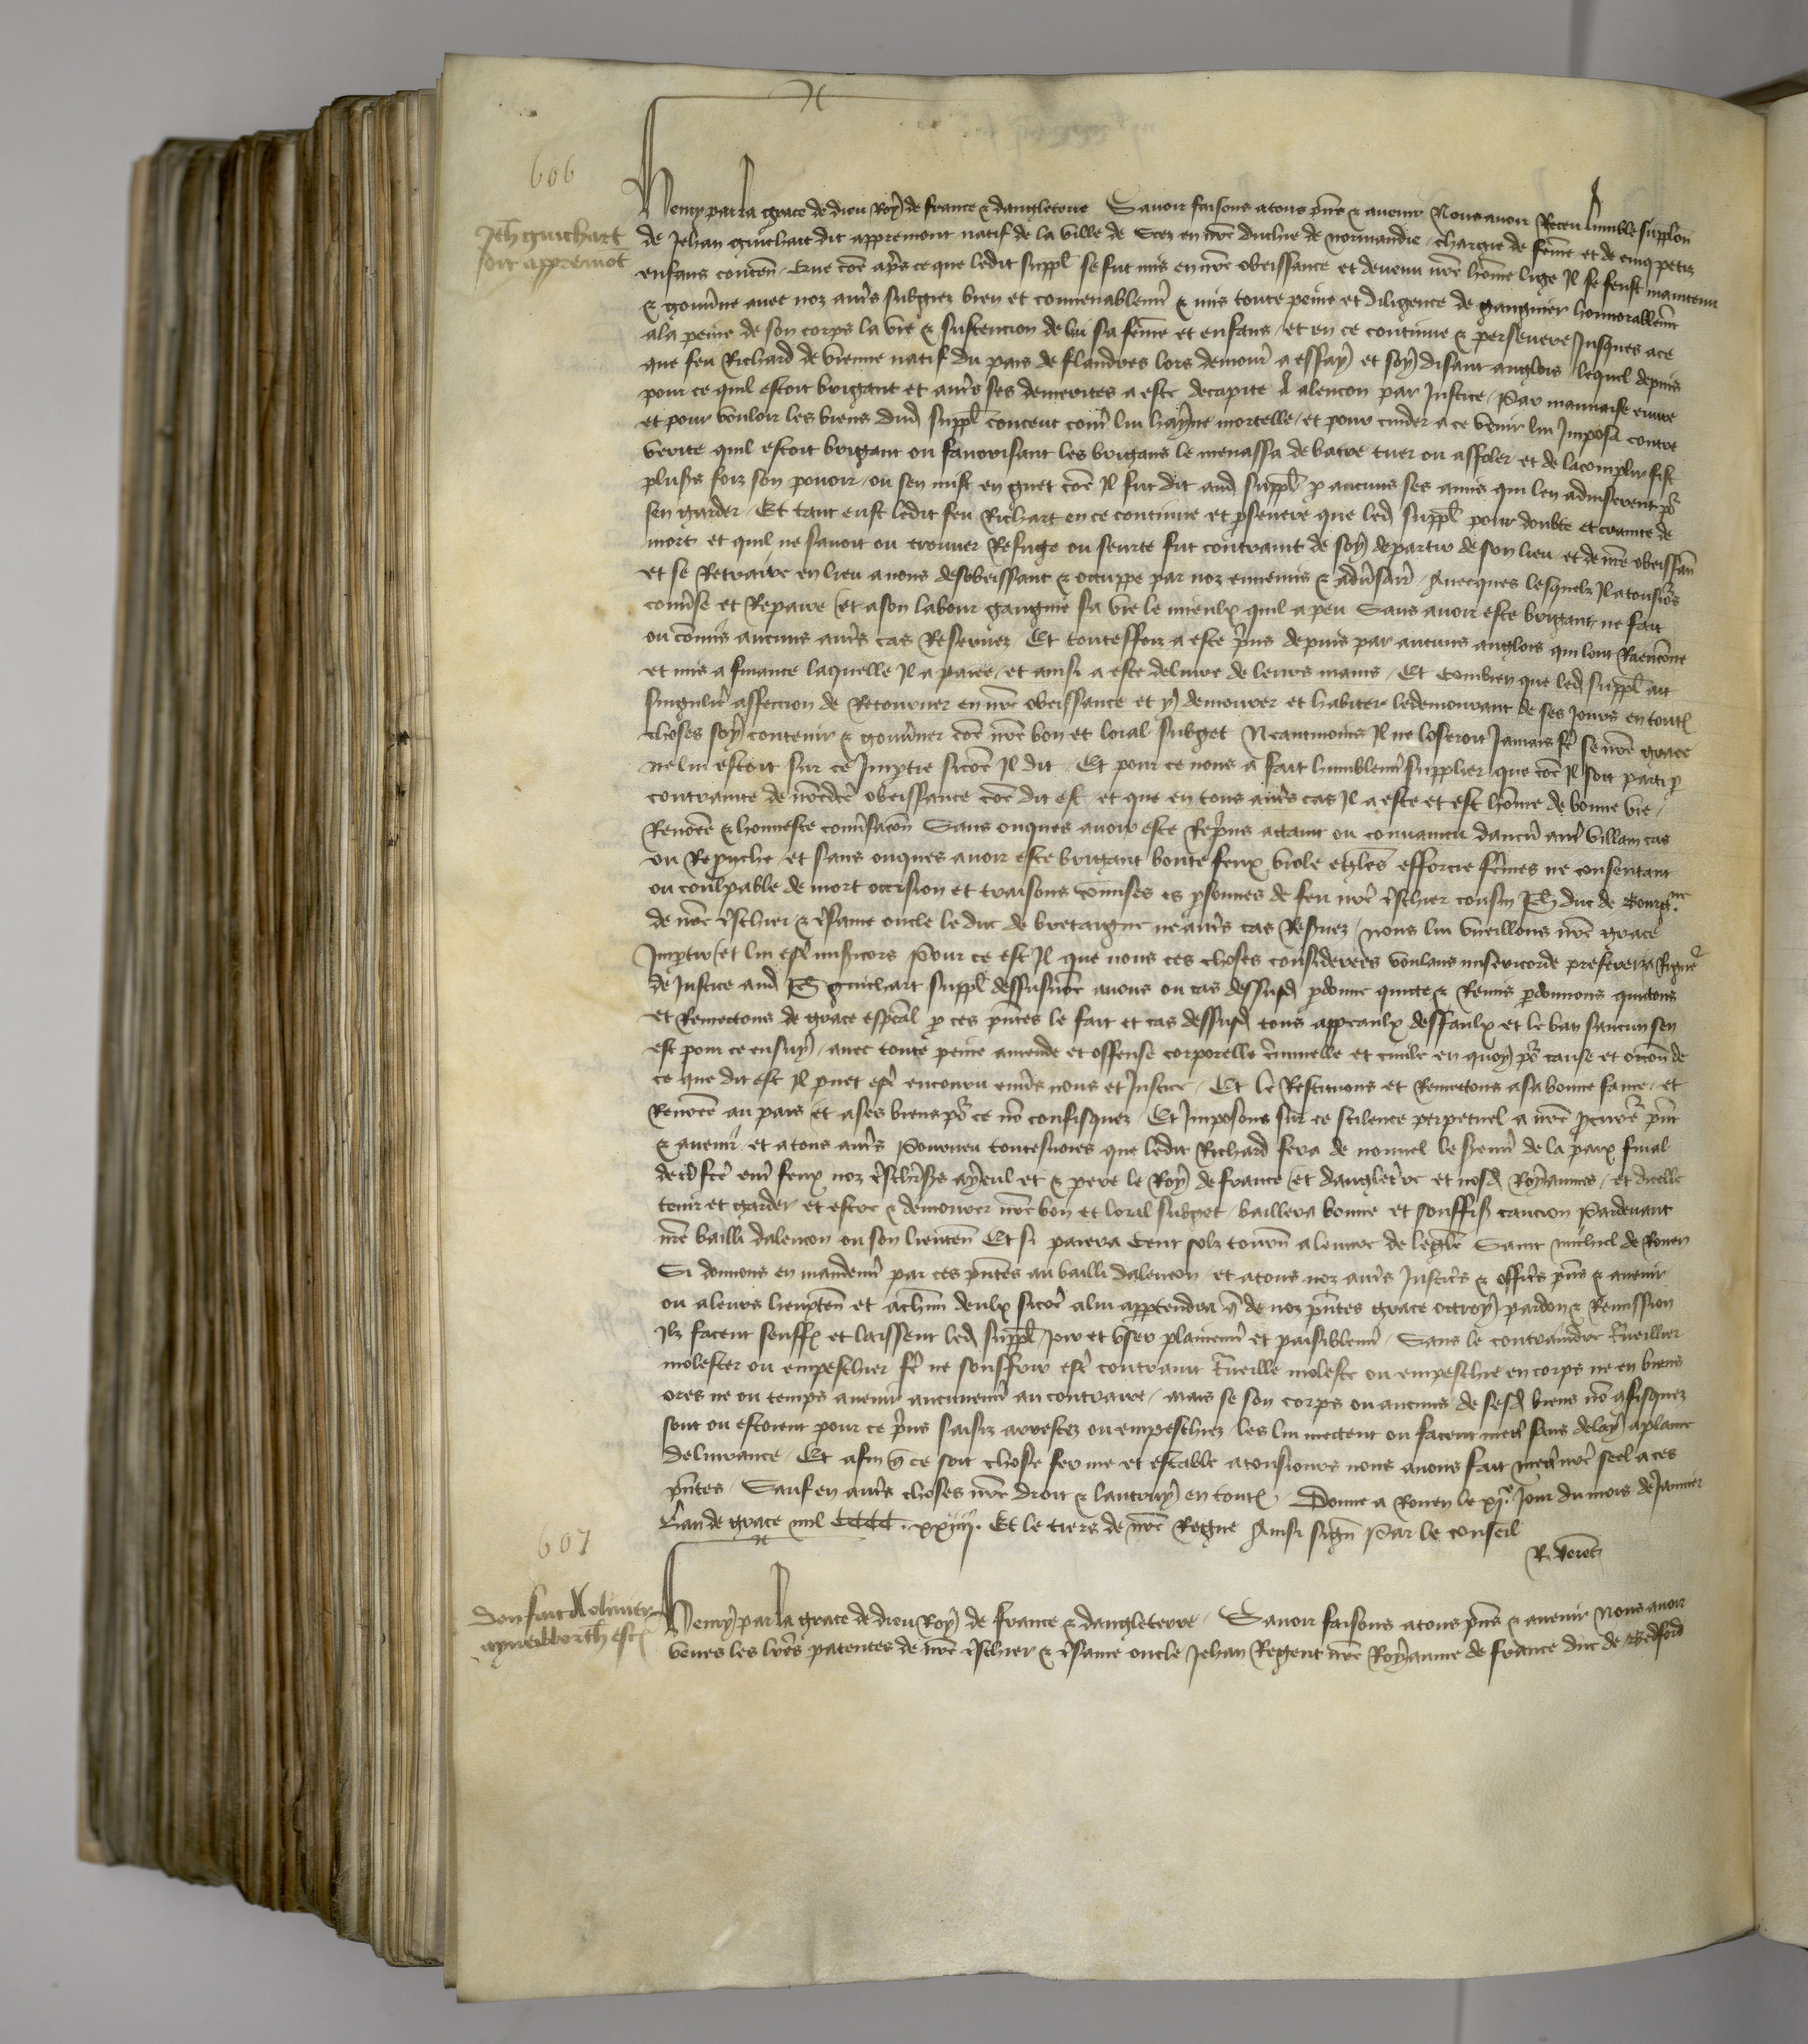 606
Jeh guichart
dit appremot
Henry par la grace de dieu Roy de france & dangleterre Savoir faisons a tous pñs & avenir Nous avoir Receu lumble supplon
de Jehan guichart dit appremont natif de la ville de Seez en nr̃e duchie de normandie / chargie de feme et de cinq petiz
enfans conten̄ Que cõe ap̃s ce que ledit suppl̃ se fut mis en nr̃e obeissance et devenu nr̃e hõme lige Il se feust maintenu
& gouv̾ne avec noz aut̾s subgiez bien et convenablem̃t & mis toute peine et diligence de gangnier honnorablem̃t
a la peine de son corps la vie & sustencion de lui sa feme et enfans / et en ce continue & persevere Jusques a ce
que feu Richard de vienne natif du pais de flandres lors demour̃ a essay et soy disant anglois / lequel depuis
pour ce quil estoit brigant et aut̾s ses demerites a este decapite A alencon par Justice / Par mauvaise envie
et pour vouloir les biens dud suppl̃ conceut cont̃ lui hayne mortelle / et pour cuider a ce venir lui Imposa contre
verite quil estoit brigant ou favorisant les brigans le menassa de batre tuer ou affoler et de lacomplir fist
plus̾s foiz son povoir / ou sen mist en guet cõe Il fut dit aud suppl̃ p aucuns ses amis qui len adviserent po͛
sen garder / Et tant eust ledit feu Richart en ce continue et psevere que led suppl̃ pour doubte et crainte de
mort et quil ne savoit ou trouver Refuge ou seurte fut contraint de soy departir de son lieu et de nr̃e obeissan̄
et se Retraire en lieu a nous desobeissant & occuppe par noz ennemis & adv̾sair̃ / Avecques lesquelz Il a tousio͛s
conv̾se et Repaire / et a son labour gangnie sa vie le mieulx quil a peu Sans avoir este brigant ne fait
ou cõmis aucuns aut̾s cas Reservez Et touteffoiz a este p̃ns depuis par aucuns anglois qui lont Raencõne
et mis a finance laquelle Il a paiee / et ainsi a este delivre de leurs mains / Et combien que led suppl̃ ait
singulier̃ affeccion de Retourner en nr̃e obeissance et y demourer et habiter le demourant de ses Jours en toutes
choses soy contenir & gouv̾ner cõe nr̃e bon et loial subget Neantmoins Il ne loseroit Jamais fr̃e se nr̃e grace
ne lui estoit sur ce Imptie sicõe Il dit / Et pour ce nous a fait humblem̃t supplier que cõe Il soit parti p
contrainte de nr̃edc̃e obeissance cõe dit est / et que en tous aut̾s cas Il a este et est hõme de bonne vie /
Renõee & honneste conv̾sac̃on Sans onques avoir este Rep̃ns attaint ou convaincu daucun aut̃ villain cas
ou Reprouche et sans onques avoir este brigant boute feux viole egl̃es efforcie fem̃es ne consentant
ou coulpable de mort occision et traisons cõmises es psonnes de feu nr̃e t̾schier cousin Jeh duc de Bourg̃ne
de nr̃e t̾schier & t̾same oncle le duc de bretaigne ne aut̾s cas Res̾vez / nous lui vueillons nr̃e grace
Imptir / et lui est̃ mis̾icors Pour ce est Il que nous ces choses considerees voulans misericorde preferer a Rigue͛
de Justice aud Jeh guichart suppl̃ dessusnõe avons ou cas dessusd pdonne quicte & Remis pdonnons quictons
et Remectons de grace esp̃eal p ces pñtes le fait et cas dessusd tous appeaulx deffaulx et le ban saucun sen
est pour ce ensuy / avec toute peine amende et offense corporelle c̾minelle et civile en quoy po͛ cause et occon de
ce que dit est Il puet est̃ encouru env̾s nous et Justice / Et le Restituons et Remectons a sa bonne fame / et
Renõee au pais et a ses biens po͛ ce nõ confisquez / Et Imposons sur ce scilence perpetuel a nr̃e pcure͛ pñt
& avenir / et a tous aut̾s Pourveu toutesvoies que ledit Richard fera de nouvel le serem̃t de la paix final
de td fc̃e ent̃ feux noz t̾schers̃ ayeul et & pere le Roy de france / et dangleterre et nosd Royaumes / et dicelle
tenir et garder / et estre & demourer nr̃e bon et loial subget / baillera bonne et souffis̃ caucion Pardevant
nr̃e bailli dalencon ou son lieuten̄ Et si paiera Cent solz tourn̄ a leuvre de legl̃e Saint michiel de Rouen
Si donnons en mandem̃t par ces pñtes au bailli dalencon / et a tous noz aut̾s Justic̾s & offic̾s pñs & avenir
ou a leurs lieuxten̄ et a chm̃ deulx sicõe a lui apptendra q̃ de noz pñtes grace ottroy pardon & Remission
Ilz facent seuff̃ et laissent led suppl̃ Joir et user plainem̃t et paisiblem̃t / Sans le contraindre t̾veillier
molester ou empeschier fr̃e ne souffrir est̃ contraint t̾veille moleste ou empeschie en corps ne en biens
ores ne ou temps avenir aucunem̃t au contraire / Mais se son corps ou aucuns de sesd biens nõ ɔfisquez
sont ou estoient pour ce p̃ns saisiz arrestez ou empeschiez / les lui mectent ou facent mett̃ sans delay a plaine
delivrance / Et afin q̃ ce soit chose ferme et estable a tousiours nous avons fait mett̃ nr̃e seel a ces
pñtes / Sauf en aut̾s choses nr̃e droit & lautruy en toutes / Donne a Rouen le xj.e Jour du mois de Janvier
Lan de grace mil CCCC . xxiiij. Et le tiers de nr̃e Regne Ainsi sign̄ Par le conseil
R. veret
607
Don fait A olivier
Henry par la grace de dieu Roy de france & dangleterre / Savoir faisons a tous pñs & avenir Nous avoir
veues les lr̃es patentes de nr̃e t̾schier & t̾same oncle Jehan Regent nr̃e Royaume de france duc de Bedford